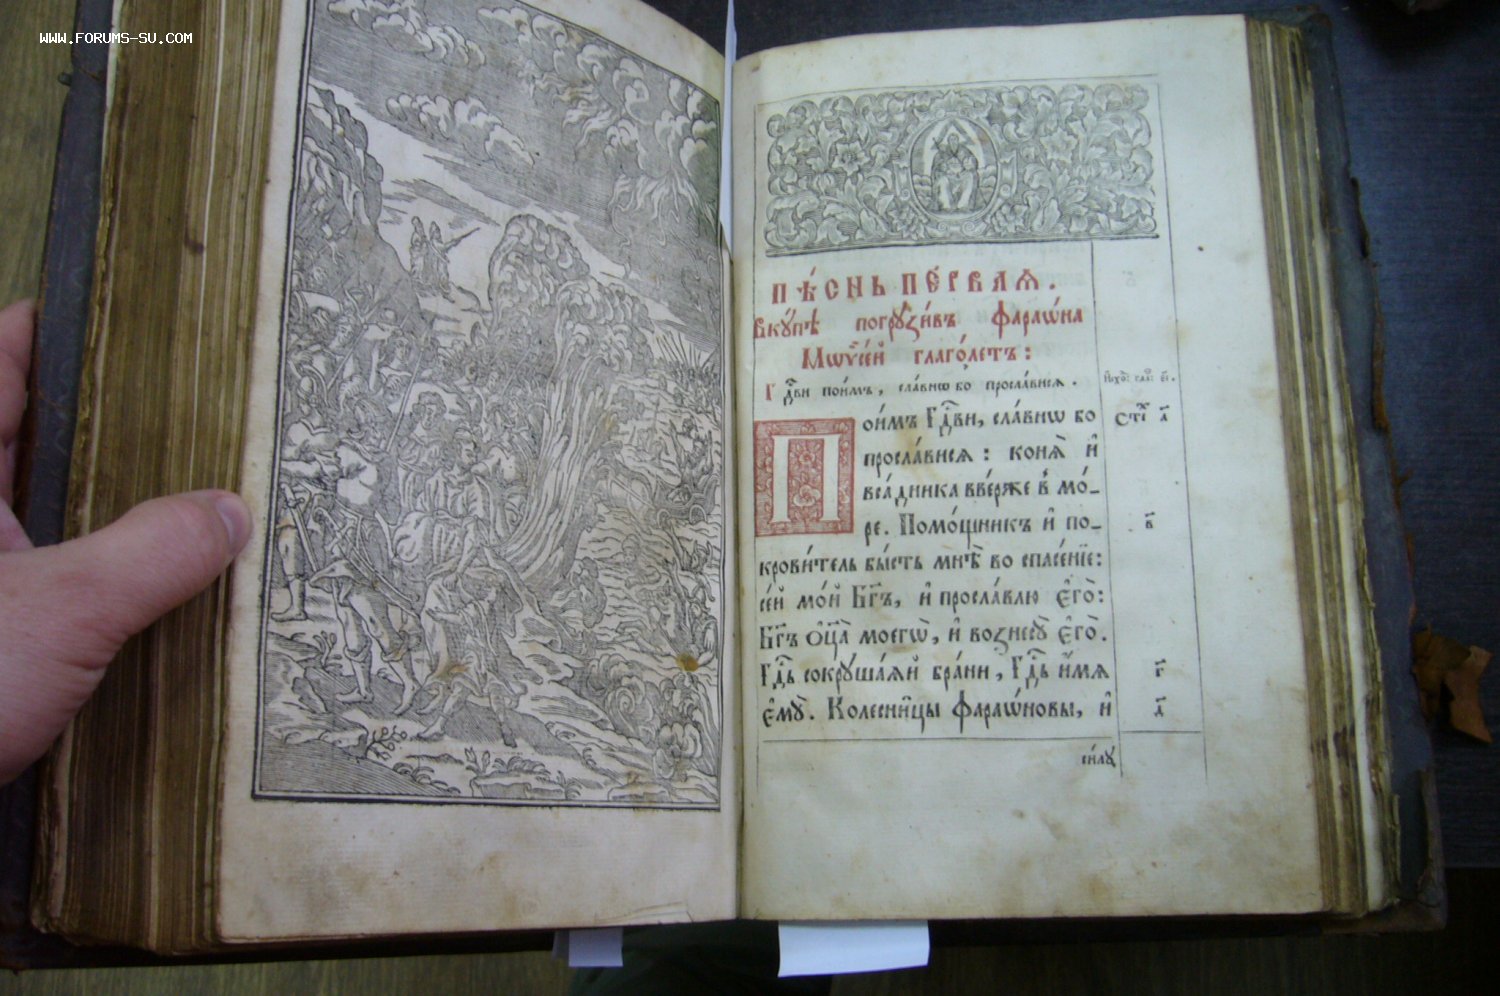 WWW.FORUMS-SU.COM
ПѢ́СНЬ ПЕ́РВАѦ.
Вкꙋ́пѣ погрꙋзи́въ фараѡ́на
Мѡѷсе́й глаго́летъ:
Гдⷭ҇ви пои́мъ, сла́внѡ бо просла́висѧ.
Пои́мъ Гдⷭ҇ви, сла́внѡ бо
просла́висѧ: конѧ̀ и҆
вса́дника вве́рже в̾ мо́-
ре. Помо́щникъ и҆ по-
крови́тель бы́сть мнѣ̀ во спасе́нїе:
се́й мо́й Бг҃ъ, и҆ просла́влю є҆го̀:
Бг҃ъ ѻ҆ц҃а̀ моегѡ̀, и҆ вознесꙋ̀ є҆го̀.
Гдⷭ҇ь сокрꙋша́ѧй бра́ни, Гдⷭ҇ь и҆́мѧ
є҆мꙋ̀. Колесни́цы фараѡ́новы, и҆
си́лꙋ
И҆схо́: гла́: є҃і.
Сті́х а҃
в҃
г҃
д҃